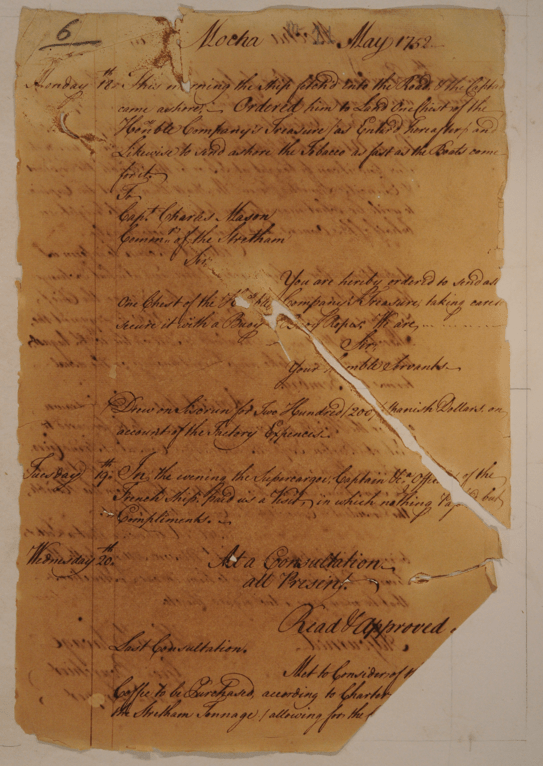 6
Mocha May 1752
Monday 18th This morning the Ship stood into the Road & the Captn
came ashore. Ordered him to Land One Chest of the
Honble Company's Treasure (as Enter'd hereafter) and
Likewise to send ashore the Tobacco as fast as the Boats come
for it.
To
Captn Charles Mason
Comandr of the Stretham
Sir,
You are hereby ordered to send as
One Chest of the Company's Treasure, taking care
secure it with a Buoy of Rope, We are,
Sir
Your Servants
Drew on for Two Hundred (200) Spanish Dollars on
account of the Factory Expences.
Tuesday 19th In the evening the Supercargoe, Captain &ca of the
French Ship, paid us a Visit, in which nothing but
Compliments.
Wednesday 20th At a Consultation
all Present
Read & Approved
Last Consultation.
Met to Consider of
Coffee to be Purchased, according to Charter
the Stretham Tonnage (allowing for the